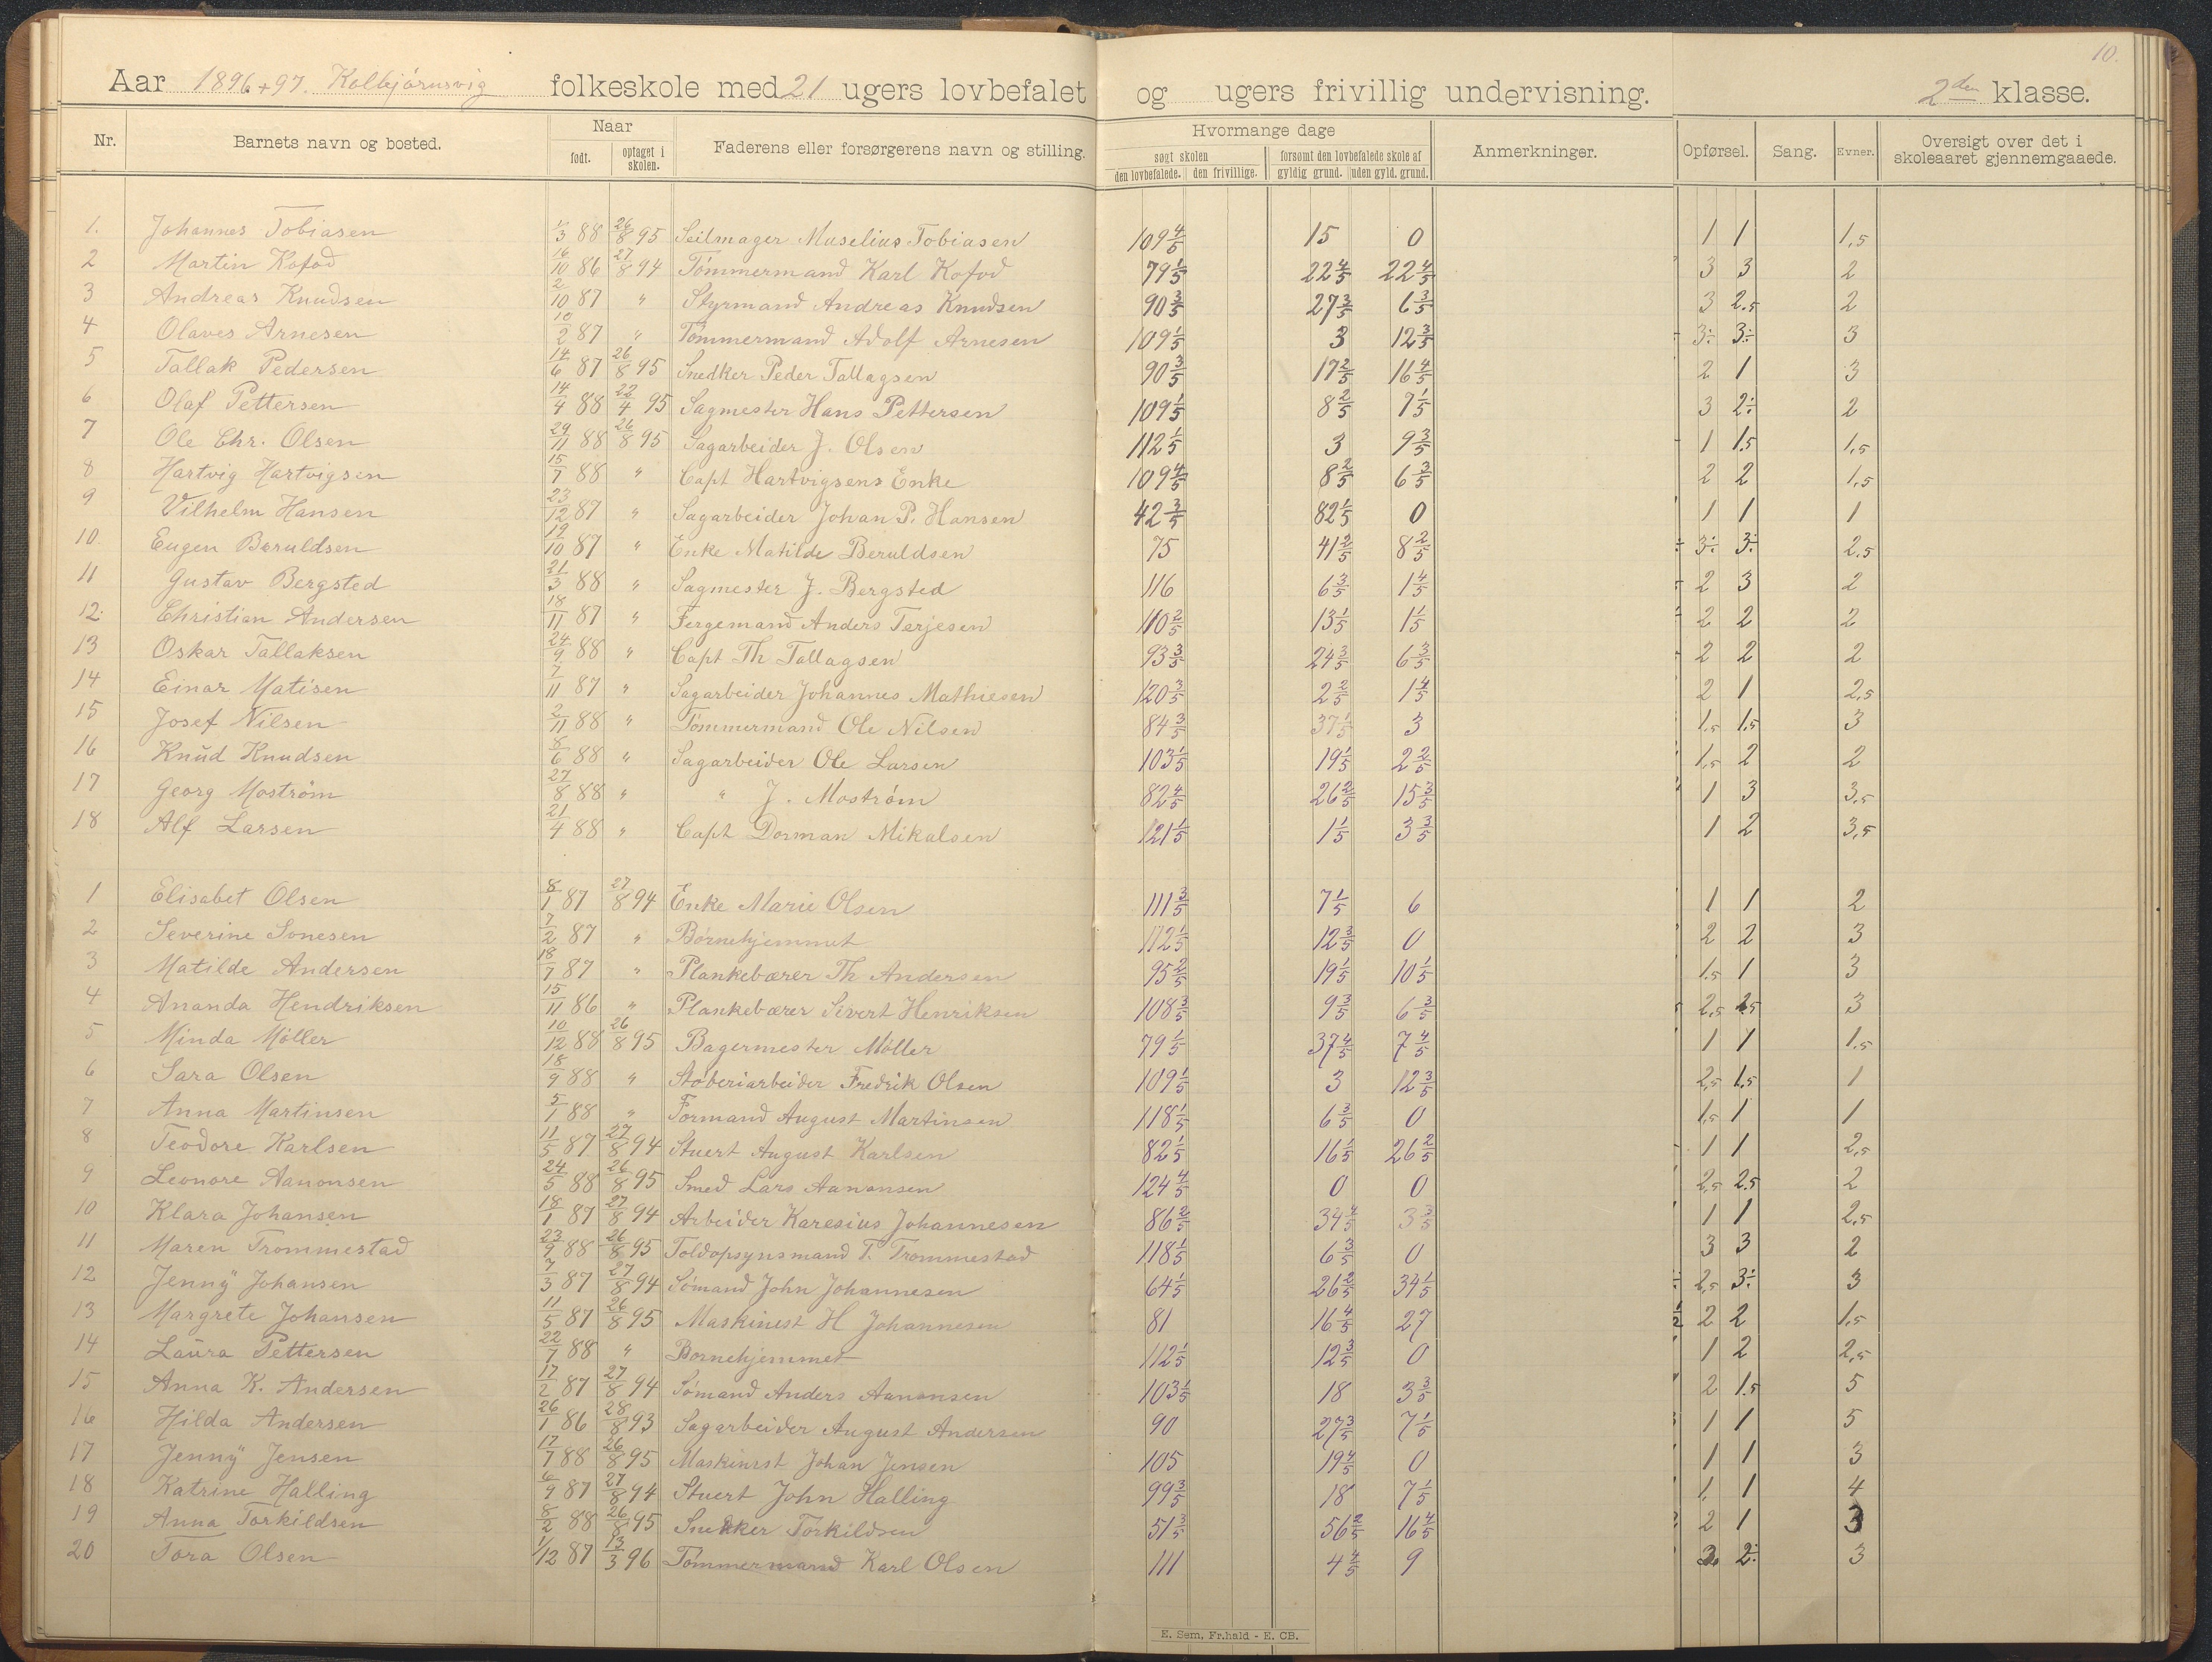 10.
Aar 1896+97. Kolbjörnsvig folkeskole med 21 ugers lovbefalet og ugers frivillig undervisning. 2den klasse.
Nr. Barnets navn og bosted. Naar født. optaget i skolen. Faderens eller forsørgerens navn og stilling. Hvormange dage søgt skolen den lovbefalede. den frivillige. forsømt den lovbefalede skole af gyldig grund. uden gyld. grund. Anmerkninger. Opførsel. Sang. Evner. Oversigt over det i skoleaaret gjennemgaaede.
1. Johannes Tobiasen 1/3 88 26/8 95 Seilmager Muselius Tobiasen 109 4/5 15 0 1 1 1,5
2 Martin Kofod 16/10 86 27/8 94 Tömmermand Karl Kofod 79 1/5 22 4/5 22 4/5 3 3 2
3 Andreas Knudsen 2/10 87 " Styrmand Andreas Knudsen 90 3/5 27 3/5 6 3/5 3 2.5 2
4 Olaves Arnesen 10/2 87 " Tömmermand Adolf Arnesen 109 1/5 3 12 3/5 3÷ 3÷ 3
5 Tallak Pedersen 14/6 87 26/8 95 Snedker Peder Tallagsen 90 3/5 17 2/5 16 4/5 2 1 3
6 Olaf Pettersen 14/4 88 22/4 95 Sagmester Hans Pettersen 109 1/5 8 2/5 7 1/5 3 2÷ 2
7 Ole Chr. Olsen 29/11 88 26/8 95 Sagarbeider J. Olsen 112 1/5 3 9 3/5 1 1.5 1,5
8 Hartvig Hartvigsen 15/7 88 " Capt Hartvigsens Enke 109 4/5 8 2/5 6 3/5 2 2 1,5
9 Vilhelm Hansen 23/12 87 " Sagarbeider Johan P. Hansen 42 3/5 82 1/5 0 1 1 1
10. Eugen Beruldsen 19/10 87 " Enke Matilde Beruldsen 75 41 2/5 8 2/5 3÷ 3÷ 2.5
11 Gustav Bergsted 21/3 88 " Sagmester J. Bergsted 116 6 3/5 1 4/5 2 3 2
12. Christian Andersen 18/11 87 " Fergemand Anders Terjesen 110 2/5 13 1/5 1 1/5 2 2 2
13 Oskar Tallaksen 24/9 88 " Capt Th Tallagsen 93 3/5 24 3/5 6 3/5 2 2 2
14 Einar Matisen 7/11 87 " Sagarbeider Johannes Mathiesen 120 3/5 2 2/5 1 4/5 2 1 2,5
15 Josef Nilsen 2/11 88 " Tömmermand Ole Nilsen 84 3/5 37 1/5 3 1,5 1,5 3
16 Knud Knudsen 8/6 88 " Sagarbeider Ole Larsen 103 1/5 19 1/5 2 2/5 1,5 2 2
17 Georg Moström 27/8 88 " " J. Moström 82 4/5 26 2/5 15 3/5 1 3 3,5
18 Alf Larsen 21/4 88 " Capt Dorman Mikalsen 121 1/5 1 1/5 3 3/5 1 2 3,5
1 Elisabet Olsen 8/1 87 27/8 94 Enke Marie Olsen 111 3/5 7 1/5 6 1 1 2
2 Severine Sonesen 7/2 87 " Börnehjemmet 112 1/5 12 3/5 0 2 2 3
3 Matilde Andersen 18/7 87 " Plankebærer Th Andersen 95 2/5 19 1/5 10 1/5 1.5 1 3
4 Ananda Hendriksen 15/11 86 " Plankebærer Sivert Henriksen 108 3/5 9 3/5 6 3/5 2,5 2.5 3
5 Minda Möller 10/12 88 26/8 95 Bagermester Möller 79 1/5 37 4/5 7 4/5 1 1 1.5
6 Sara Olsen 18/9 88 " Stöberiarbeider Fredrik Olsen 109 1/5 3 12 3/5 2,5 1,5 1
7 Anna Martinsen 5/1 88 " Formand August Martinsen 118 1/5 6 3/5 0 1,5 1 1
8 Teodore Karlsen 11/5 87 27/8 94 Stuert August Karlsen 82 1/5 16 1/5 26 2/5 1 1 2,5
9 Leonore Aanonsen 24/5 88 26/8 95 Smed Lars Aanonsen 124 4/5 0 0 2,5 2.5 2
10 Klara Johansen 18/1 87 27/8 94 Arbeider Karesius Johannesen 86 2/5 34 4/5 3 3/5 1 1 2,5
11 Maren Trommestad 23/9 88 26/8 95 Toldopsynsmand T. Trommestad 118 1/5 6 3/5 0 3 3 2
12 Jenny Johansen 7/3 87 27/8 94 Sömand John Johannesen 64 1/5 26 2/5 34 1/5 2,5 3÷ 3
13 Margrete Johansen 11/5 87 26/8 95 Maskinest H Johannesen 81 16 4/5 27 2 2 1,5
14 Laura Pettersen 22/7 88 " Bornehjemmet 112 1/5 12 3/5 0 1 2 2,5
15 Anna K. Andersen 17/2 87 27/8 94 Sömand Anders Aanonsen 103 1/5 18 3 3/5 2 1.5 5
16 Hilda Andersen 26/1 86 28/8 93 Sagarbeider August Andersen 90 27 3/5 7 1/5 1 1 5
17 Jenny Jensen 17/7 88 26/8 95 Maskinist Johan Jensen 105 19 4/5 0 1 1 3
18 Katrine Halling 6/9 87 27/8 94 Stuert John Halling 99 3/5 18 7 1/5 1, 1 4
19 Anna Torkildsen 8/2 88 26/8 95 Snekker Torkildsen 51 3/5 56 2/5 16 4/5 2 1 3
20 Tora Olsen 1/12 87 13/3 96 Tömmermand Karl Olsen 111 4 4/5 9 3 2÷ 3
E. Sem, Fr.hald - E. CB.